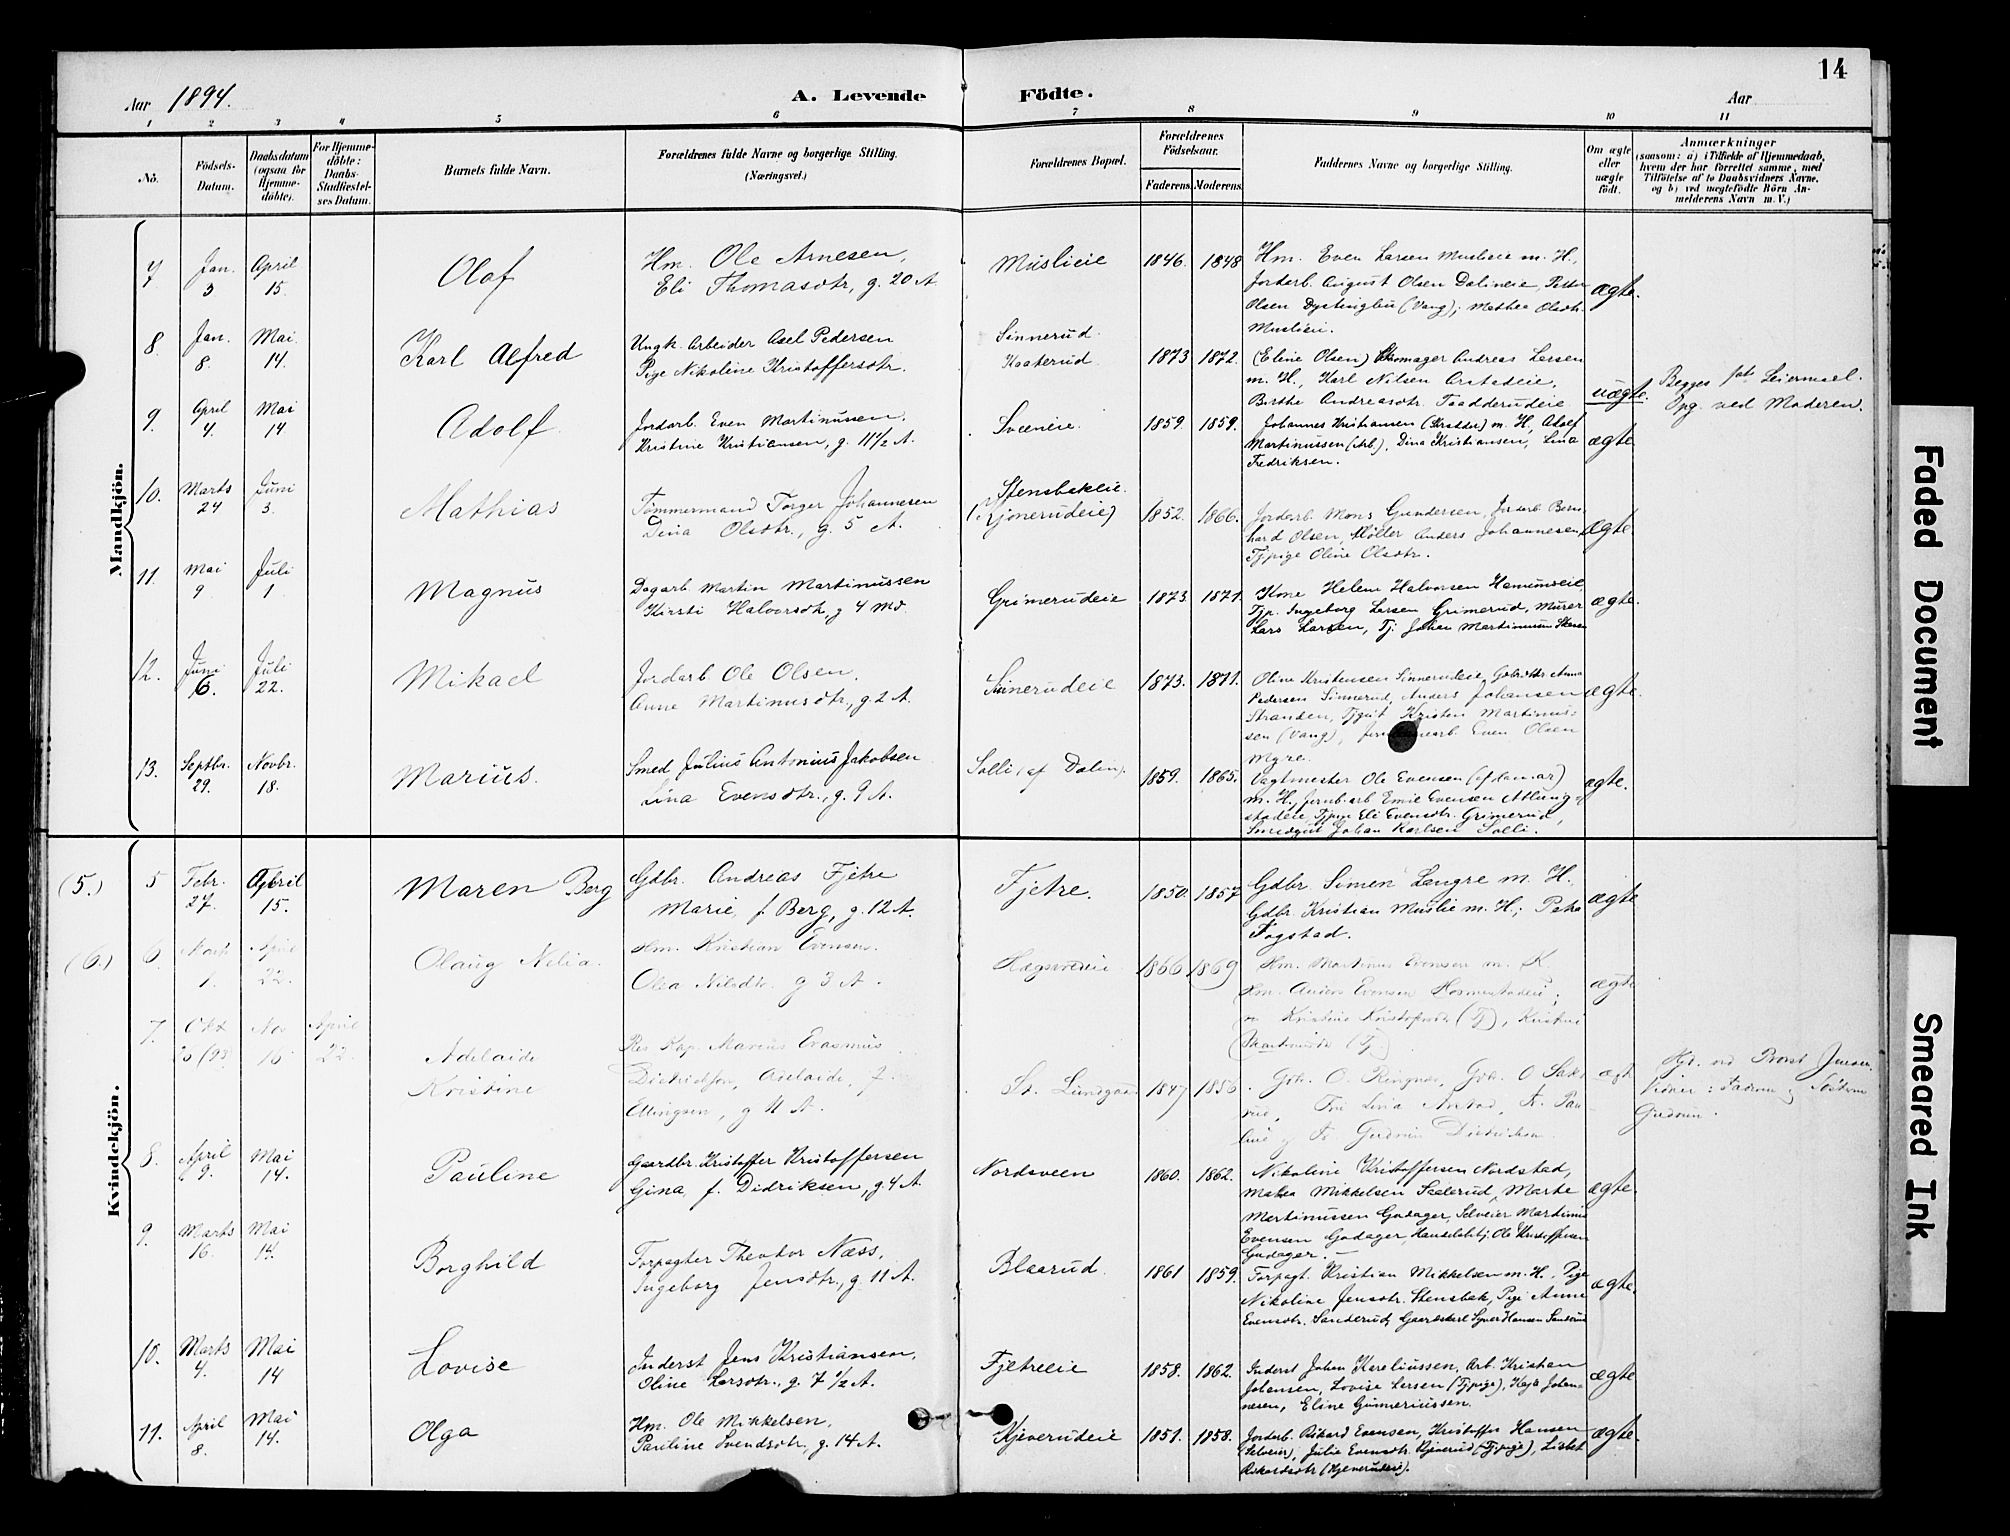 14
Aar 1894.
A. Levende Födte.
Aar
1 2 3 4 5 6 7 8 9 10 11
No.
Födsels-Datum.
Daabsdatum (ogsaa för Hjemme-döbte).
For Hjemme-döbte: Daabs-Stadfæstel-ses Datum.
Barnets fulde Navn.
Forældrenes fulde Navne og borgerlige Stilling.
(Næringsvei.)
Forældrenes Bopæl.
Forældrenes Födselsaar.
Faderens. Moderens.
Faddernes Navne og borgerlige Stilling.
Om ægte eller uægte födt.
Anmærkninger
(saasom: a) i Tilfælde af Hjemmedaab,
hvem der har forrettet samme, med
Tilföielse af to Daabsvidners Navne,
og b) ved uægtefödte Börn An-
melderens Navn m. V.)
Mandkjön.
7 Jan. 3 April 15. Olaf
Hm. Ole Arnesen,
Eli Thomasdtr, g. 20 A.
Muslieie 1846. 1848
Hm. Even Larsen Muslieie m. H.,
Jordarb. August Olsen Dalineie, Petter
Olsen Dystingbu (Vang); Mathea Olsdtr.
Muslieie.
ægte.
8. Jan. 8. Mai 14. Karl Alfred
Ungk. Arbeider Axel Pedersen
Pige Nikoline Kristoffersdtr.
Sinnerud.
Kaaterud. 1873 1872.
(Eline Olsen) Skomager Andreas Larsen
m. H., Karl Nilsen Arstadeie,
Berthe Andreasdtr. Taadderudeie
uægte.
Begges 1ste Leiermaal.
Opg. ved Moderen.
9. April 4. Mai 14 Adolf
Jordarb. Even Martinusen,
Kristine Kristiansen, g. 11 1/2 A.
Sveeneie. 1859. 1859.
Johannes Kristiansen (Skrædder) m. H., Adolf
Martinussen (Arb.), Dina Kristiansen, Lina
Fredriksen.
ægte
10. Marts 24 Juni 3. Mathias
Tømmermand Torger Johannesen
Dina Olsdtr., g. 5 A.
Stensbakeie.
(Kjonerudeie) 1852. 1866.
Jordarb. Mons Gundersen, Jordarb. Bern-
hard Olsen, Møller Anders Johannesen,
Tjpige Oline Olsdtr.
ægte.
11. Mai 9 Juli 1 Magnus
Dagarb. Martin Martinussen
Kirsti Halvorsdtr, g 4 Md.
Grimerudeie 1873. 1871.
Kone Helene Halvorsen
Tjp. Ingeborg Larsen Grimerud, Murer
Lars Larsen, Tj. Johan Martinusen
ægte.
12. Juni 6. Juli 22. Mikael
Jordarb Ole Olsen.
Anne Martinusdtr., g. 2 A.
Sinnerudeie 1873. 1871.
Oline Kristensen Sinnerudeie, Anna
Pedersen Sinnerud, Anders Johansen
Stranden, Tjgut Kristen Martinus-
sen (Vang), Even Olsen
Myre.
ægte.
13. Septbr. 29. Novbr. 18. Marius.
Smed Julius Antonius Jakobsen
Lina Evensdtr., g. 9 A.
Solli (af Dalen). 1859. 1865.
Vagtmester Ole Evensen (af Hamar)
m. H., Jernb.arb Emil Evensen
stadeie, Tjpige Eli Evensdtr. Grimerud,
Smedgut Johan Karlsen Solli.
ægte.
Kvindekjön.
(5.) 5 Febr. 27. April 15. Maren Berg
Gdbr. Andreas Fjetre
Marie, f. Berg, g. 12 A.
Fjetre. 1850. 1857
Gdbr Simen Langre m. H.,
Gdbr. Kristian Muslie m. H;
Fogstad.
ægte
(6.) 6. Marts 1. April 22. Olaug Nelia.
Hm. Kristian Evensen.
Olea Nilsdtr. g 3 A.
1866 1869
Hm. Martinus Evensen m. K
Hm. Anders Evensen
ægte
7. Okt 25 /93 Nov 16 April 22. Adelaide Kristine
Res. Kap. Marius Erasmus
Didrichson, Adelaide, f.
Ellingsen, g 11 A.
St. Lundgaard 1847 1856
Gbr. O. Ringnes, Gbr. O
Frk Lina Arstad, Fr. Pau-
line & Fr. Gudrun Didrichson.
ægte
Hjd. ved Provst Jensen.
Vidner: Faderen & Søsteren
Gudrun.
8. April 9. Mai 14. Pauline
Gaardbr. Kristoffer Kristoffersen
Gina, f. Didriksen, g. 4 A.
Nordsveen 1860. 1862.
Nikoline Kristoffersen Nordstad,
Mathea Mikkelsen Saelerud, Marte
Martinussen Godager, Selveier Martinus
Evensen Godager, Handelsbtj. Ole Kristoffersen
Godager.
ægte.
9. Marts 16. Mai 14. Borghild
Forpagter Theodor Næss,
Ingeborg Jensdtr., g. 11 A.
Blaarud. 1861 1859.
Forpagt. Kristian Mikkelsen m. H., Pige
Nikoline Jensdtr. Stensbak, Pige Anne
Evensdtr. Sanderud, Gaardskarl Syver Hansen Sanderud
ægte.
10. Marts 4. Mai 14 Lovise
Inderst Jens Kristiansen,
Oline Larsdtr., g. 7 1/2 A.
Fjetreeie 1858. 1862.
Inderst Johan Kareliussen, Arb. Kristian
Johansen, Lovise Larsen (Tjpige), Kaja Johan-
nesen, Eline Gunneriussen.
ægte
11. April 8. Mai 14. Olga
Hm. Ole Mikkelsen,
Pauline Svendsdtr., g. 14 A.
Kjeverudeie 1851. 1858.
Jordarb. Rikard Evensen, Kristoffer Hansen
(Selveier), Julie Evensdtr. Kjeverud (Tjpige), Lisbet
Rikardsdtr (Kjeverudeie).
ægte.
Faded Document
Smeared Ink